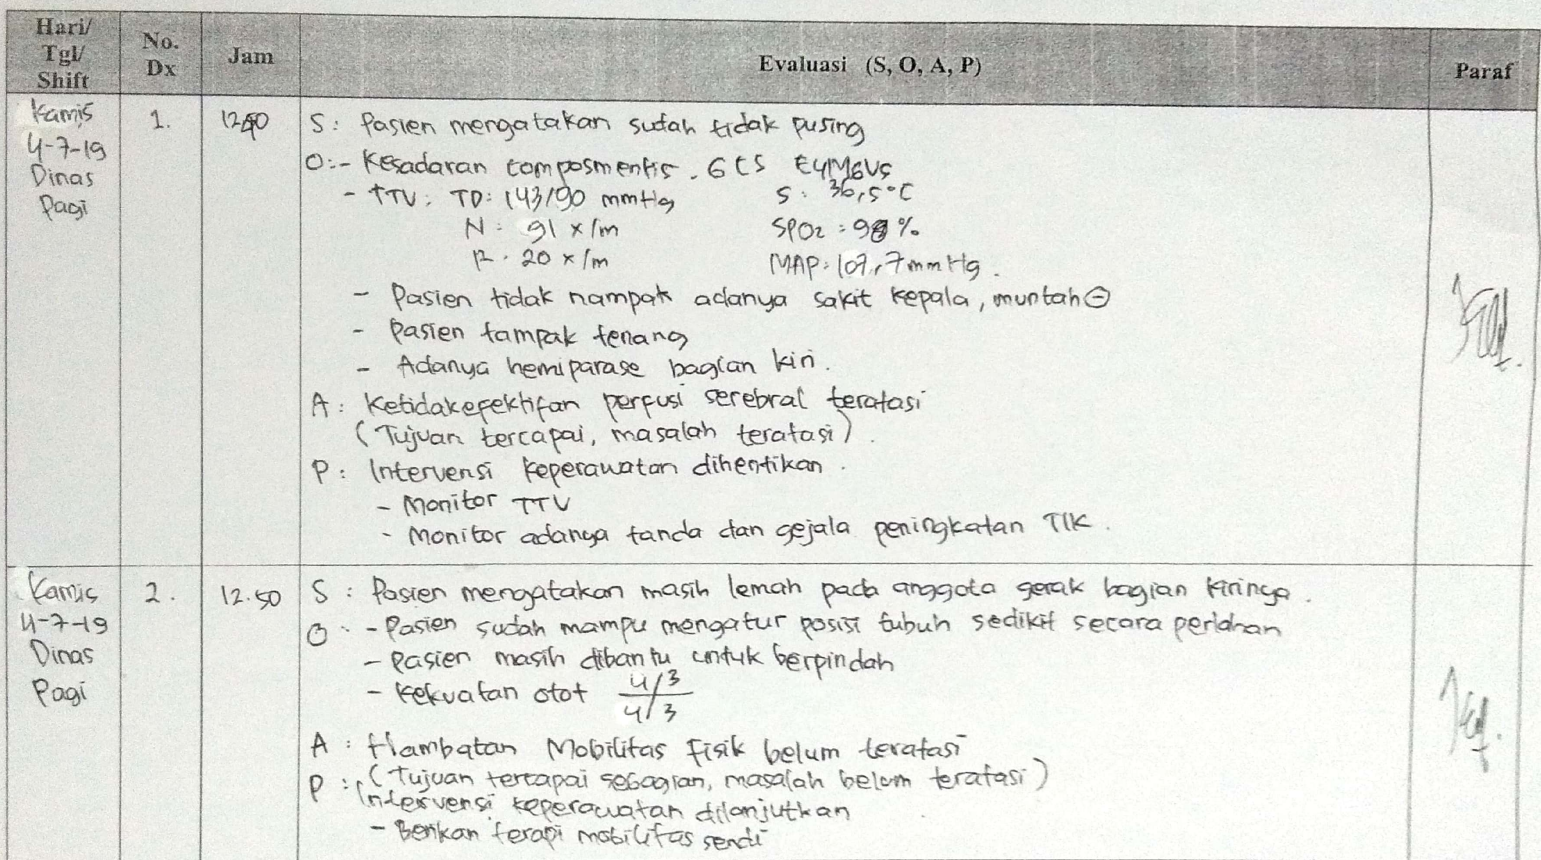 Hari/ Tgl/ Shift No. Dx Jam Evaluasi (S, O, A, P) Paraf
Kamis 4-7-19 Dinas Pagi
1.
S: Pasien mengatakan sudah tidak pusing
O:- Kesadaran composmentis. GCS E4M6V5
- TTV: TD: 143/90 mmHg S: 36,5°C
N: 91 x/m SPO2 : 98 %
R. 20 x/m MAP: 107,7 mmHg.
- Pasien tidak nampak adanya sakit kepala, muntah ⊖
- Pasien tampak tenang
- Adanya hemiparase bagian kiri.
A: Ketidakefektifan perfusi serebral teratasi
(Tujuan tercapai, masalah teratasi).
P: Intervensi keperawatan dihentikan.
- Monitor TTV
- Monitor adanya tanda dan gejala peningkatan TIK.
Kamis 4-7-19 Dinas Pagi
2.
12.50
S: Pasien mengatakan masih lemah pada anggota gerak bagian kirinya.
O: - Pasien sudah mampu mengatur posisi tubuh sedikit secara perlahan
- Pasien masih dibantu untuk berpindah
- Kekuatan otot 4/3
4/3
A: Hambatan Mobilitas Fisik belum teratasi
(Tujuan tercapai sebagian, masalah belum teratasi)
P: Intervensi keperawatan dilanjutkan
- Berikan terapi mobilitas sendi